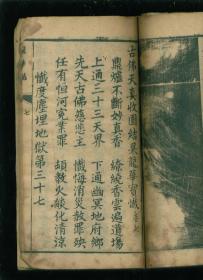 古佛天真收圓結果龍華寶懺卷七
鼎爐不斷妙真香　繚繞香雲遍道場
上通三十三天界　下通幽冥地府鄉
先天古佛慈悲主　懺悔消災赦罪殃
任有恒河寃業罪　頡教火燄化清涼
懺度塵埋地獄第三十七